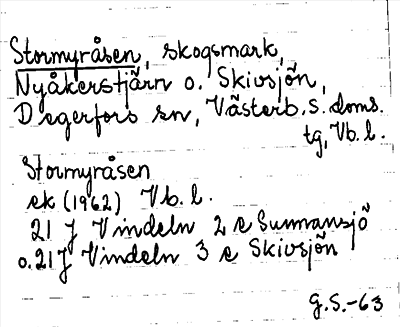 Stormyråsen, skogsmark,
Nyåkerstjärn o. Skivsjön,
Degerfors sn, Västerb. s. doms.
tg, Vb. l.
Stormyråsen
ek (1962) Vb. l.
21 J Vindeln 2 e Sunnansjö
o. 21 J Vindeln 3 e Skivsjön
G.S.-63